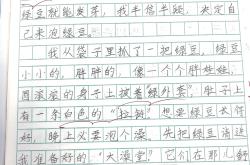 绿豆就能发芽，我半信半疑，决定自
己来泡绿豆。
我从袋子里抓了一把绿豆，绿豆
小小的，胖胖的，像一个个胖娃娃，
圆滚滚的身子上披着绿外套”。肚子上
有一条白色的“拉链”想要绿豆长得
快，晚上必要泡个澡，先把绿豆请进
我准备好的“大澡堂”它们在那儿